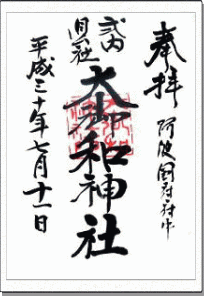 奉拝
阿波国府府中
式内
大御和神社
平成三十年七月十一日